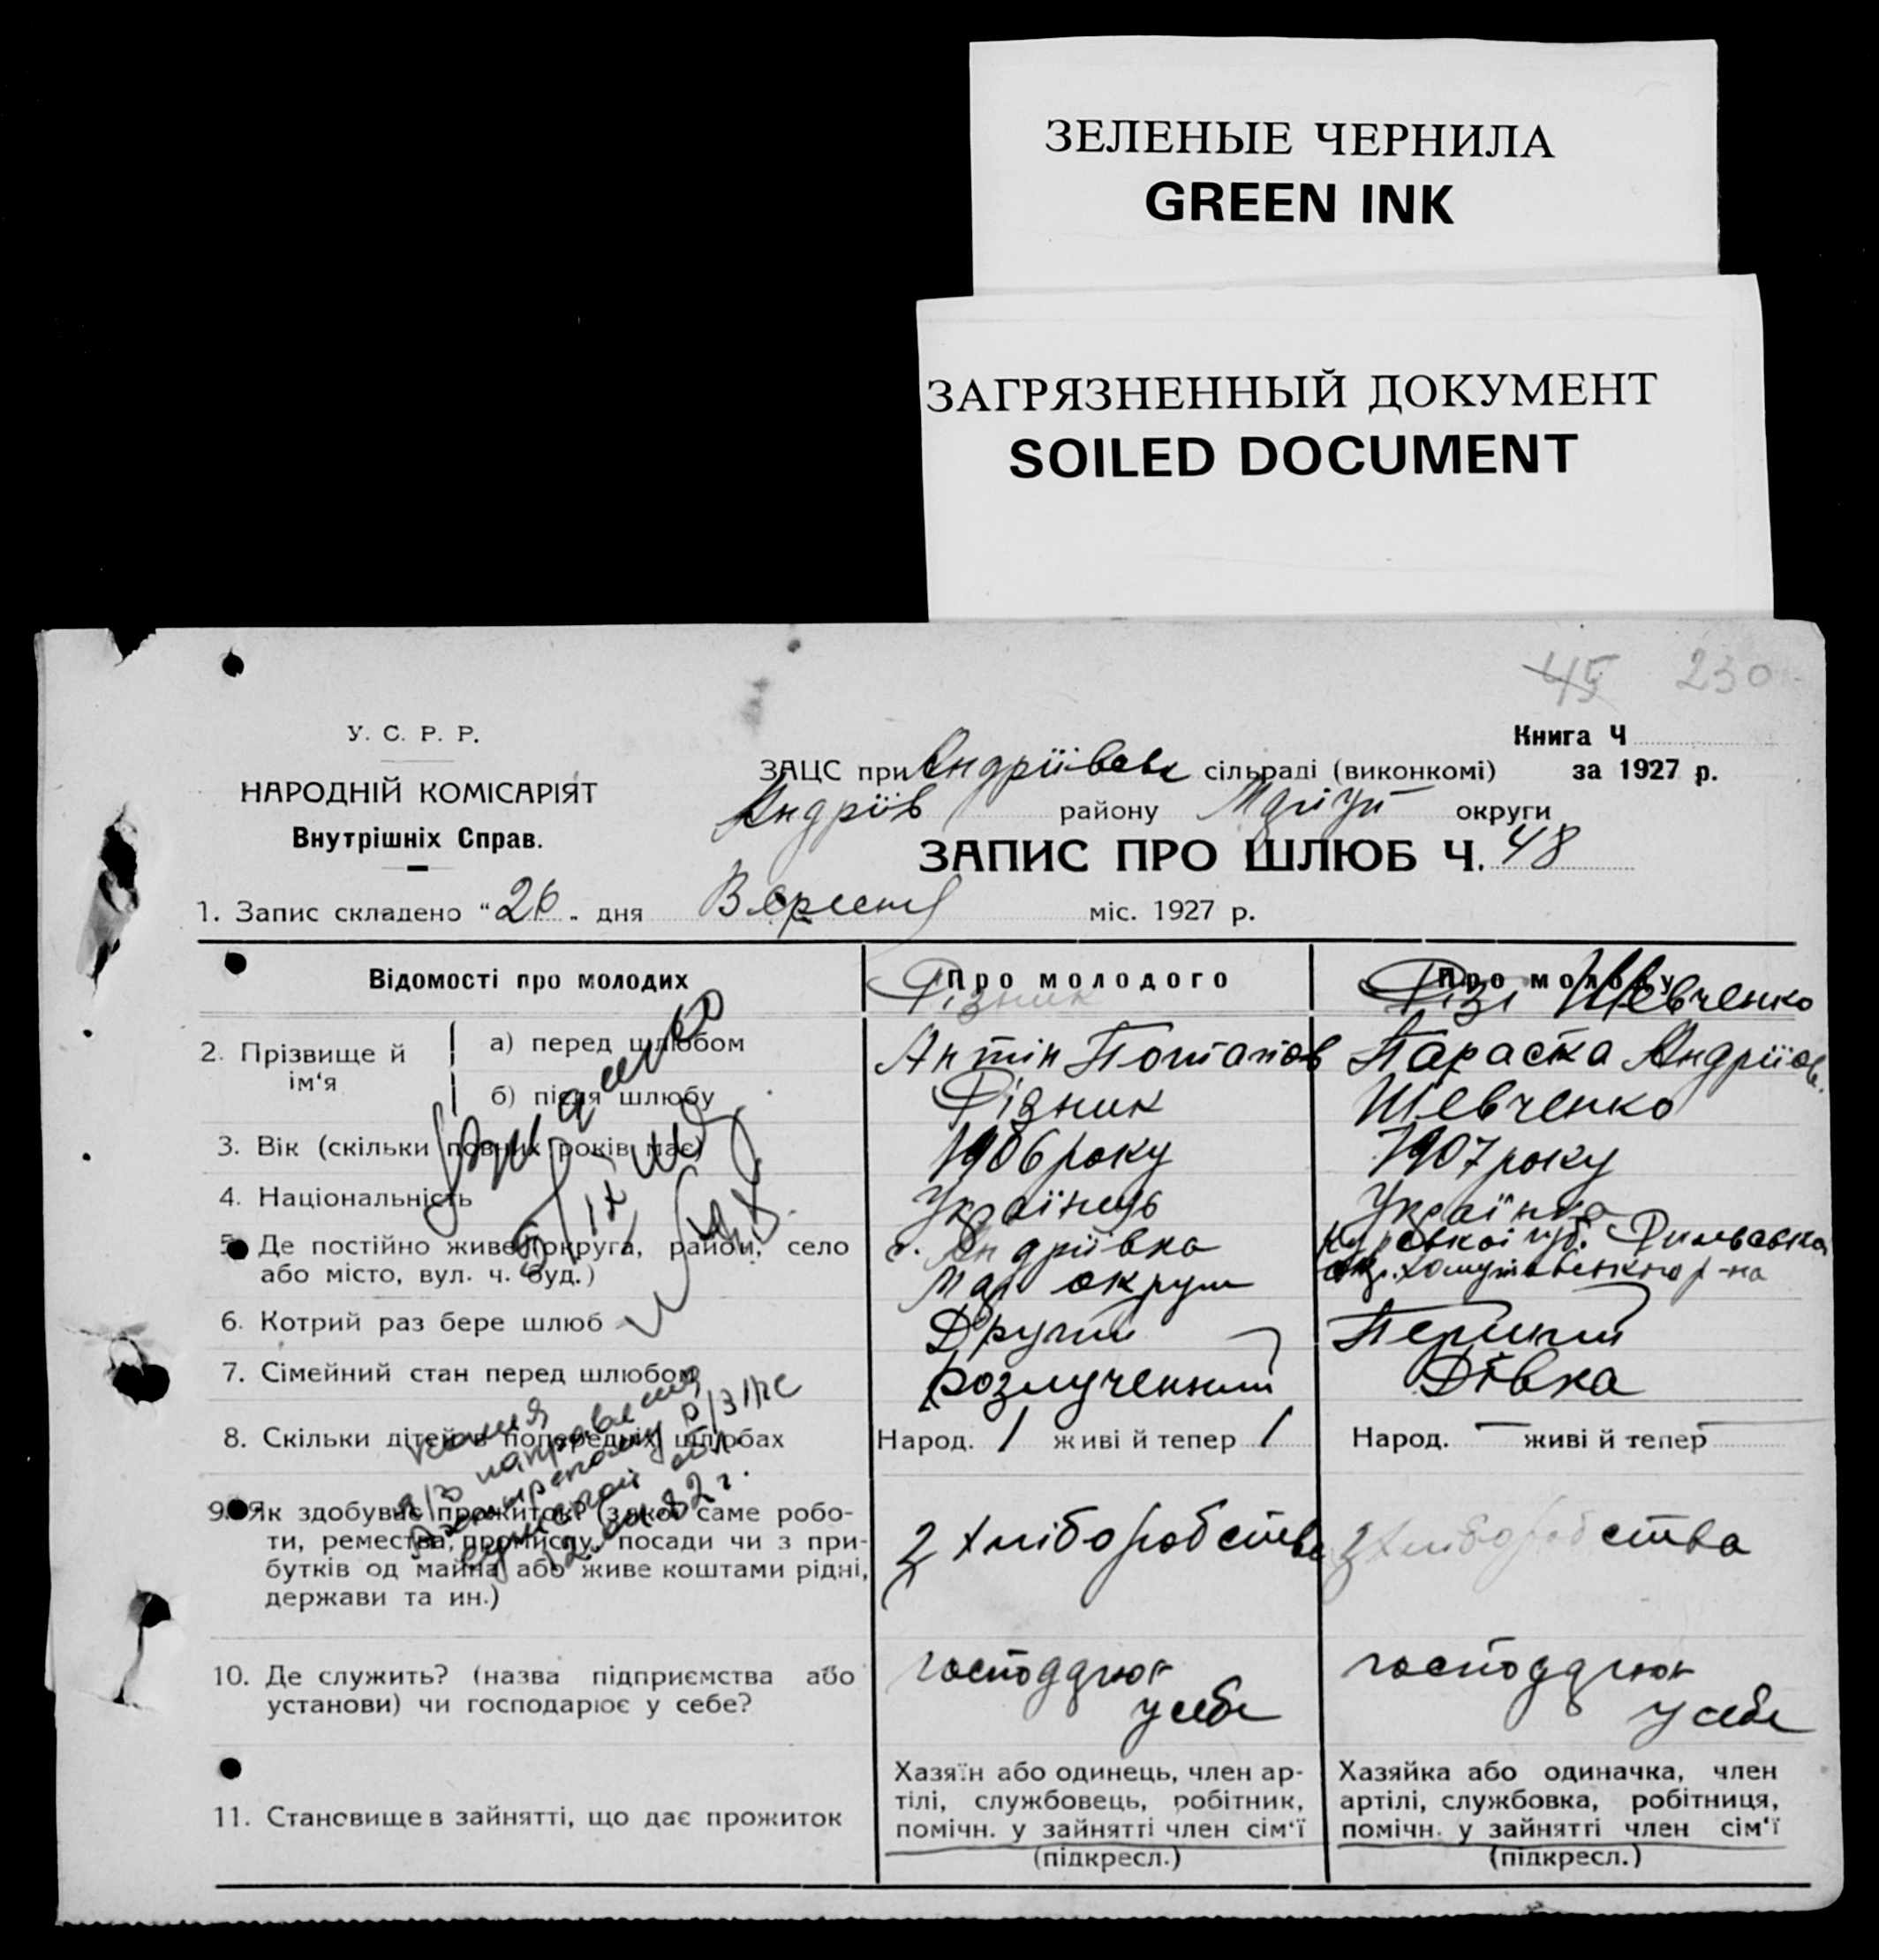 ЗЕЛЕНЫЕ ЧЕРНИЛА
GREEN INK
ЗАГРЯЗНЕННЫЙ ДОКУМЕНТ
SOILED DOCUMENT
45 230
У. С. Р. Р.
НАРОДНІЙ КОМІСАРІЯТ
Внутрішніх Справ.
Книга Ч
ЗАЦС при Андріївськ сільраді (виконкомі) за 1927 р.
Андріїв району Маріуп округи
ЗАПИС ПРО ШЛЮБ Ч. 48
1. Запис складено "26" дня Вересня міс. 1927 р.
Відомості про молодих
Про молодого
Про молоду
2. Прізвище й ім'я
а) перед шлюбом
Різник
Антін Потапов
Шевченко
Параска Андріїов.
б) після шлюбу
Різник
Шевченко
3. Вік (скільки повних років має)
1906 року
1907 року
4. Національність
Українець
Українка
5. Де постійно живе (округа, район, село
або місто, вул. ч. буд.)
с. Андріївка
Мар округи
Курської губ.
окр. Хомутовського р-на
6. Котрий раз бере шлюб
Другий
Перший
7. Сімейний стан перед шлюбом
розлученний
Дівка
8. Скільки дітей в попередніх шлюбах
Народ. 1 живі й тепер 1
Народ. – живі й тепер –
9. Як здобуває прожиток? (з якої саме робо-
ти, ремества, промислу, посади чи з при-
бутків од майна або живе коштами рідні,
держави та ин.)
З хліборобства
З хліборобства
10. Де служить? (назва підприємства або
установи) чи господарює у себе?
господарює
у себе
господарює
у себе
11. Становище в зайнятті, що дає прожиток
Хазяїн або одинець, член ар-
тілі, службовець, робітник,
помічн. у зайнятті член сім'ї
(підкресл.)
Хазяйка або одиначка, член
артілі, службовка, робітниця,
помічн. у зайнятті член сім'ї
(підкресл.)